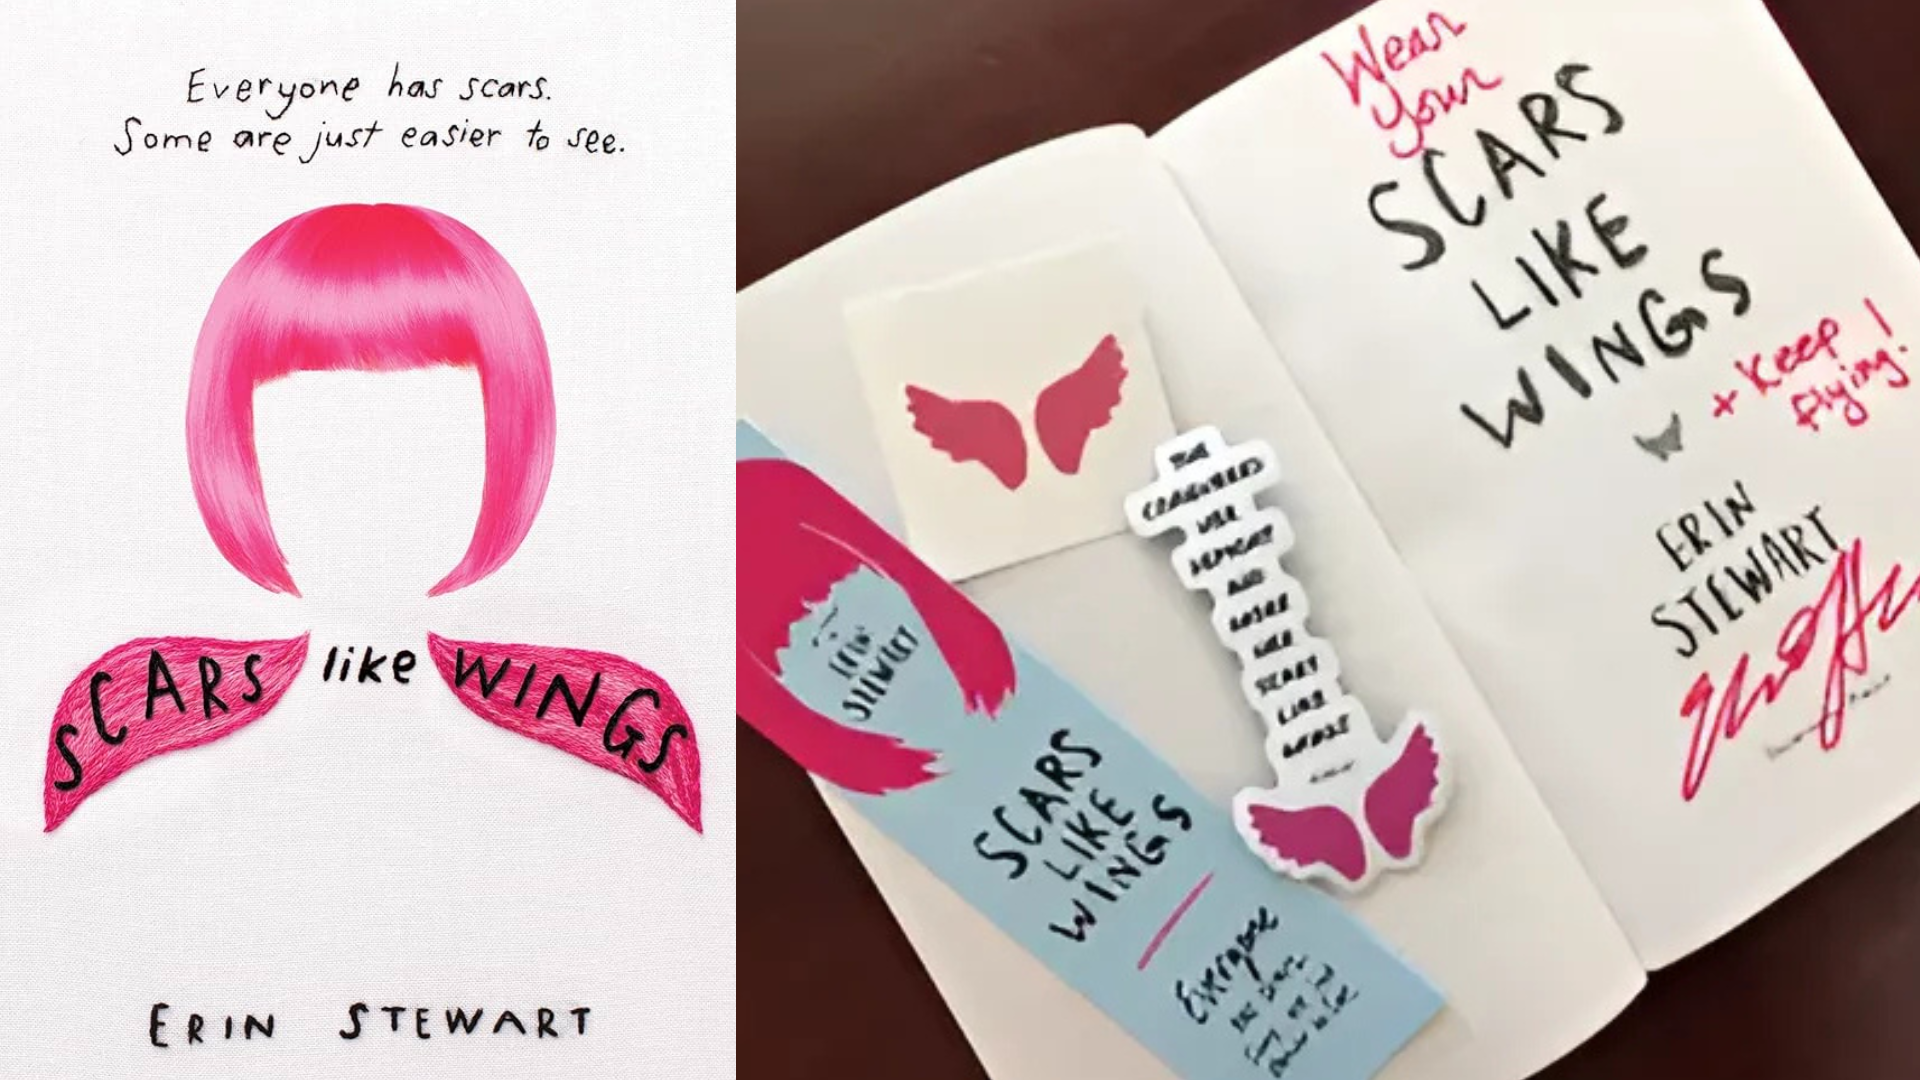 Everyone has scars.
Some are just easier to see.
SCARS like WINGS
ERIN STEWART
Wear
your
SCARS
LIKE
WINGS
+ Keep
flying!
ERIN
STEWART
ERIN
STEWART
SCARS
LIKE
WINGS
Everyone
THE
HER
AND
HER
LIKE